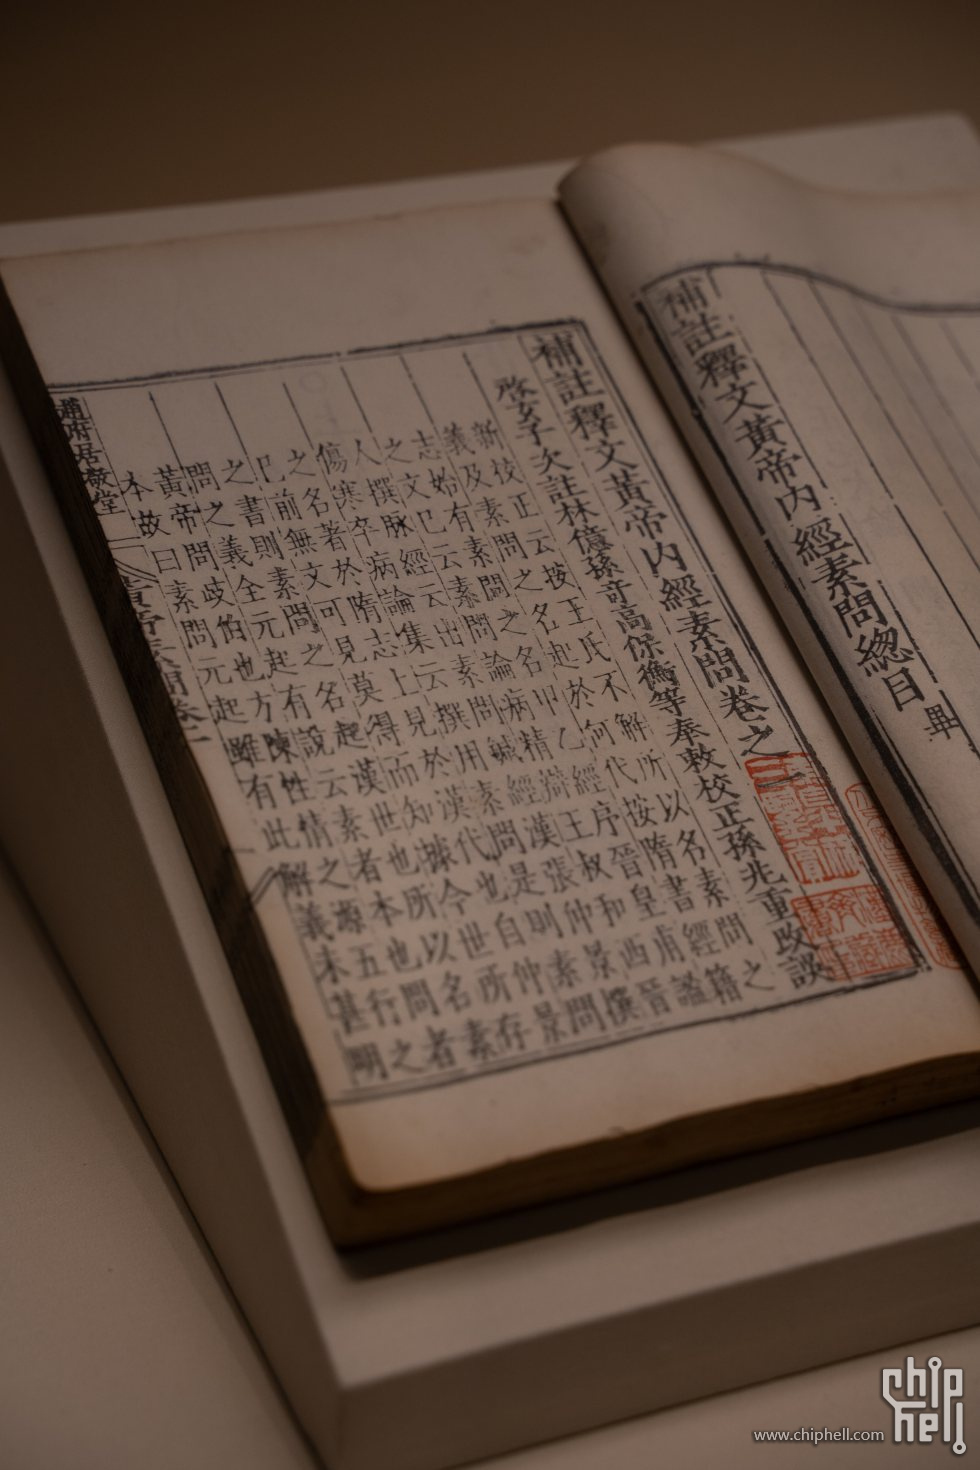 補註釋文黃帝內經素問總目畢
補註釋文黃帝內經素問卷之一
啓玄子次註林億孫奇高保衡等奉敕校正孫兆重改誤
新校正云按王氏不解所以名素問之
義及素問之名起於何代按隋書經籍
志始有素問之名甲乙經序晉皇甫謐
之文已云素問論病精辯王叔和西晉
人撰脉經云出素問鍼經漢張仲景撰
傷寒卒病論集云撰用素問是則素問
之名著於隋志上見於漢代也自仲景
已前無文可見莫得而知據今世所存
之書則素問之名起漢世也所以名素
問之義全元起有說云素者本也問者
黃帝問歧伯也方陳性情之源五行之
本故曰素問元起雖有此解義未甚明
趙府居敬堂
黃帝素問卷一
www.chiphell.com
chip hell